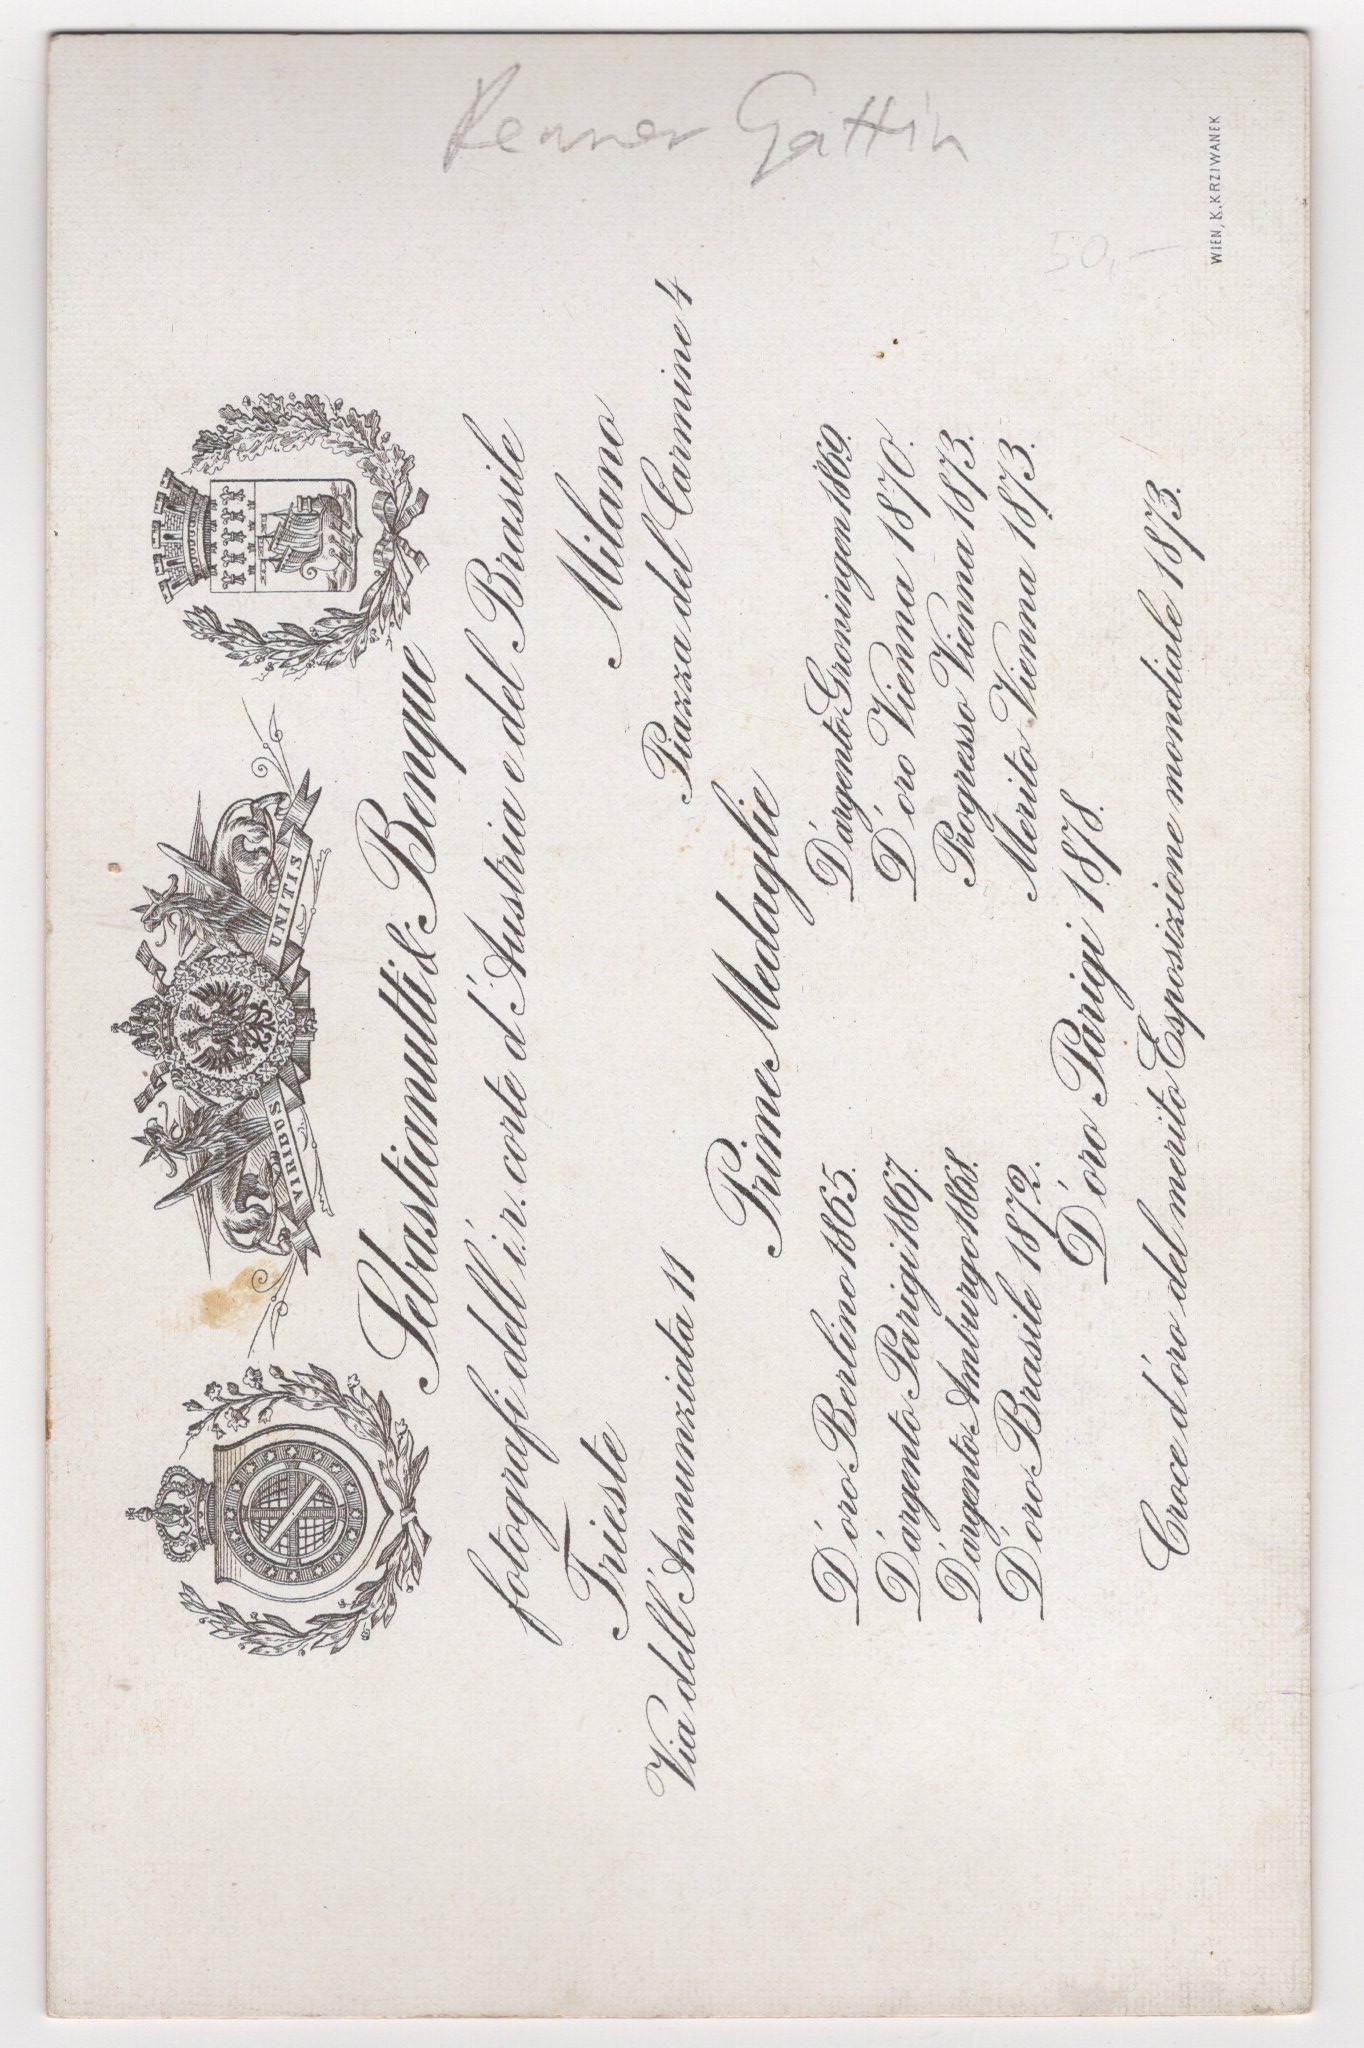 VIRIBUS UNITIS
Sebastianutti & Benque
fotografi dell' i. r. corte d'Austria e del Brasile
Trieste
Via dell' Annunziata 11
Milano
Piazza del Carmine 4
Prime Medaglie
D'oro Berlino 1865.
D'argento Parigi 1867.
D'argento Amburgo 1868.
D'oro Brasile 1872.
D'argento Groningen 1869.
D'oro Vienna 1870.
Progresso Vienna 1873.
Merito Vienna 1873.
D'oro Parigi 1878.
Croce d'oro del merito Esposizione mondiale 1873.
WIEN, K. KRZIWANEK
Renner Gattin
50,-